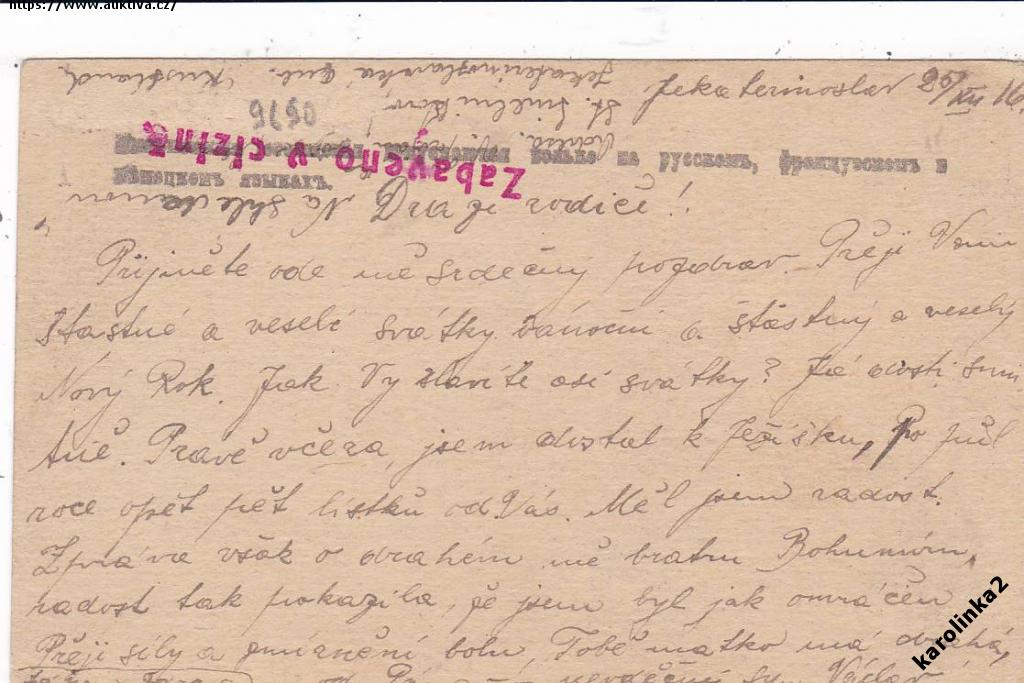 https://www.auktiva.cz/
Jekaterinoslav 26/XII 16.
Jekaterinoslavska Gub. Russland
0976
Zabaveno v cizině
только на русскомъ, французскомъ и
нѣмецкомъ языкахъ.
Na shledanou
Drazí rodiče!
Přijměte ode mě srdečný pozdrav. Přeji Vám
šťastné a veselé svátky vánoční a šťastný a veselý
Nový Rok. Jak Vy slavíte asi svátky? Já dosti smu
tně. Právě včera, jsem dostal k Ježíšku, Po půl
roce opět pět lístků od Vás. Měl jsem radost.
Zpráva však o drahém mě bratru Bohumírů,
radost tak pokazila, že jsem byl jak omráčen
Přeji síly a zmírnění bolu Tobě matko má drahá,
od nevděčný syn Václav
karolinka2